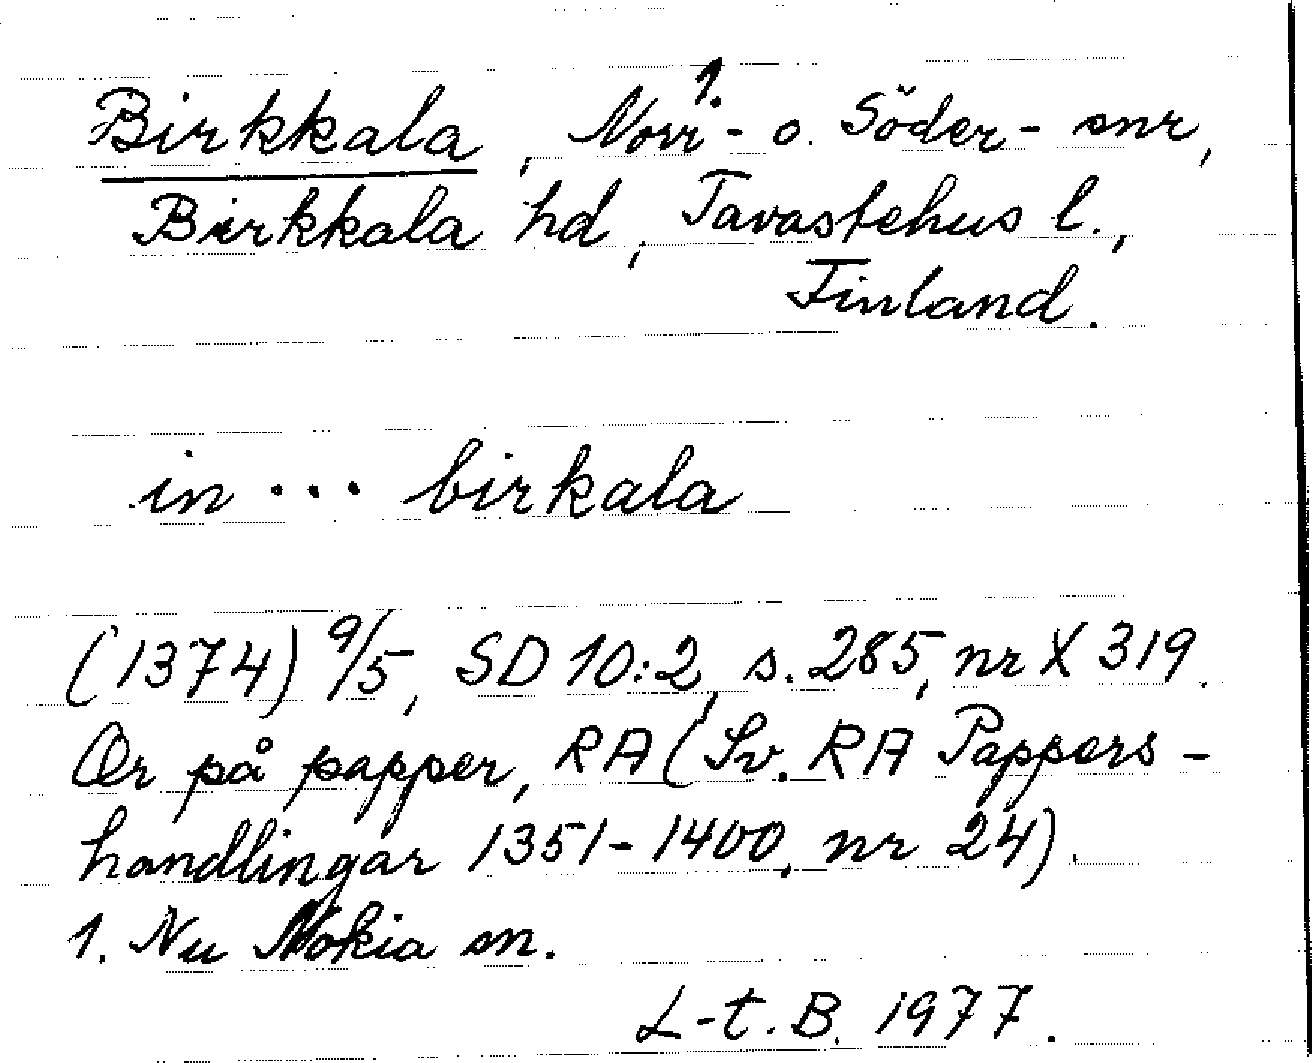 Birkkala, Norr-¹· o. Söder- snr,
Birkkala hd, Tavastehus l.,
Finland.
in ... birkala
(1374) 9/5, SD 10:2, s. 285, nr X 319.
Or på papper, RA (Sv. RA Pappers-
handlingar 1351-1400, nr 24).
1. Nu Nokia sn.
L-t. B. 1977.